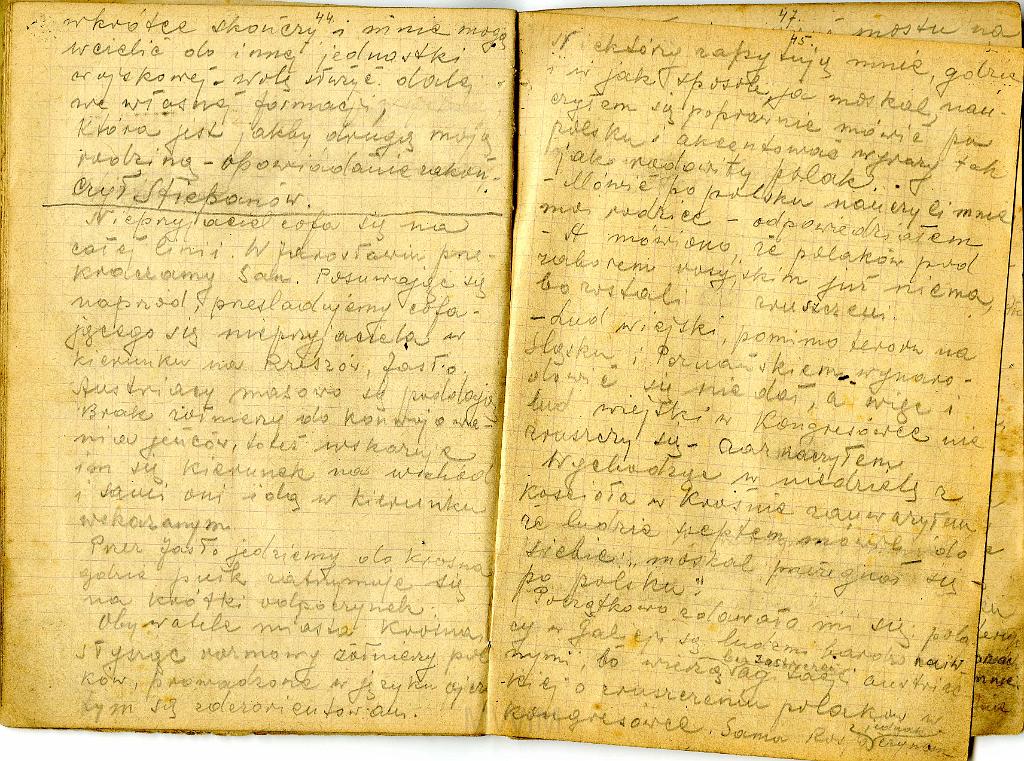 44.
wkrótce skończy i mnie mogą
wcielić do innej jednostki
wojskowej - wolę służyć dalej
we własnej formacji,
która jest jakby drugą moją
rodziną - opowiadanie zakoń-
czył Stiepanów.
Nieprzyjaciel cofa się na
całej linii. W Jarosławiu prze-
kraczamy San. Posuwając się
naprzód, prześladujemy cofa-
jącego się nieprzyjaciela w
kierunku na Rzeszów, Jasło.
Austriacy masowo się poddają
Brak żołnierzy do konwojowa-
nia jeńców, toteż wskazuje
im się kierunek na wschód
i sami oni idą w kierunku
wskazanym.
Przez Jasło jedziemy do Krosna
gdzie pułk zatrzymuje się
na krótki odpoczynek.
Obywatele miasta Krosna,
słysząc rozmowy żołnierzy pola-
ków, prowadzone w języku ojczy-
zym są zdezorientowani.
47.
i mostu na
45.
Niektórzy zapytują mnie, gdzie
i w jaki sposób, ja moskal, nau-
czyłem się poprawnie mówić po
polsku i akcentować wyrazy tak
jak rodowity polak.
- Mówić po polsku nauczyli mnie
moi rodzice - odpowiedziałem
- A mówiono, że polaków pod
zaborem rosyjskim już niema,
bo zostali zruszczeni.
- Lud wiejski, pomimo teroru na
Śląsku i Poznańskiem, wynaro-
dowić się nie dał, a więc i
lud wiejski w Kongresówce nie
zruszczy się - zaznaczyłem
Wychodząc w niedzielę z
kościoła w Krośnie zauważyłem
że ludzie szeptem mówili do
siebie: "moskal przeżegnał się
po polsku."
Początkowo zdawało mi się, pola-
cy w Galicji są ludźmi bardzo naiw-
nymi, bo wierzą bez zastrzeżeń agitacji austriac-
kiej o zruszczeniu polaków w
Kongresówce. Sama Ros. jednak